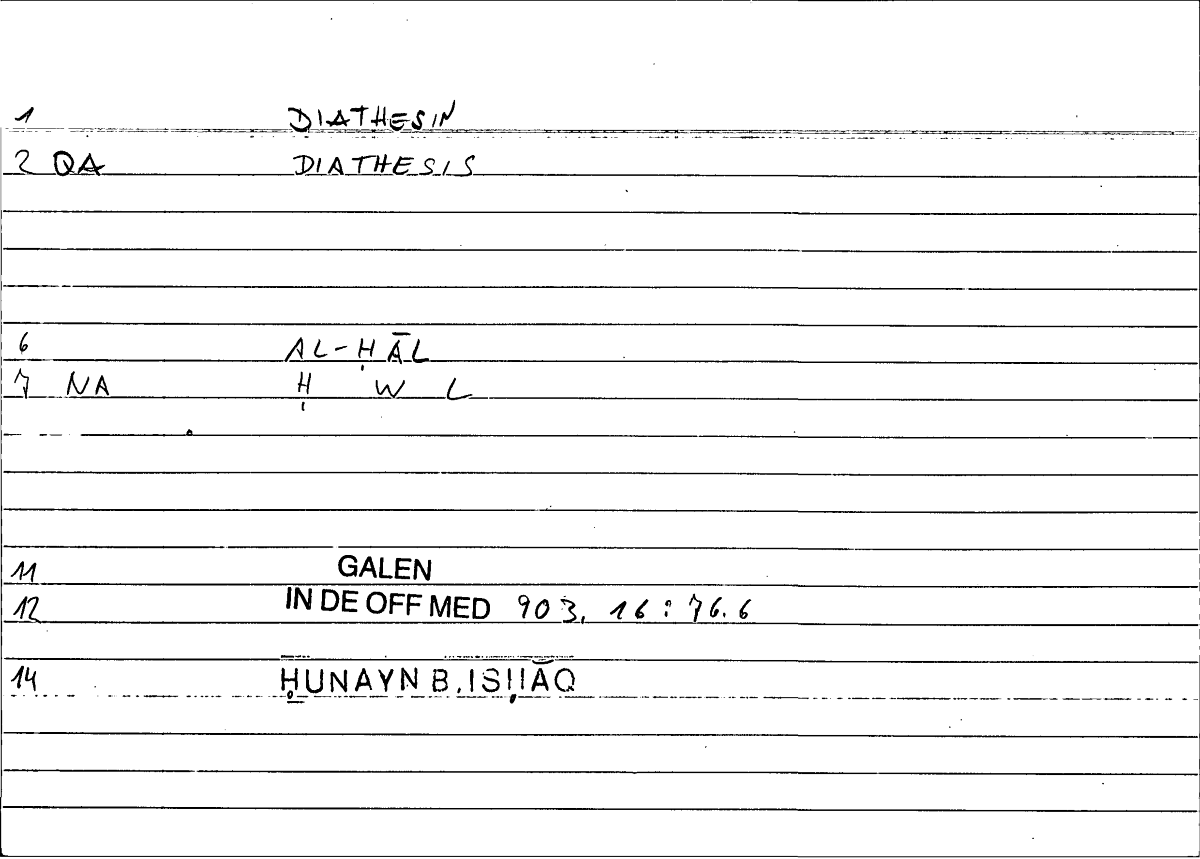 1 DIATHESIN
2 QA DIATHESIS
6 AL-ḤĀL
7 NA Ḥ W L
11 GALEN
12 IN DE OFF MED 903, 16 : 76.6
14 ḤUNAYN B. ISḤĀQ